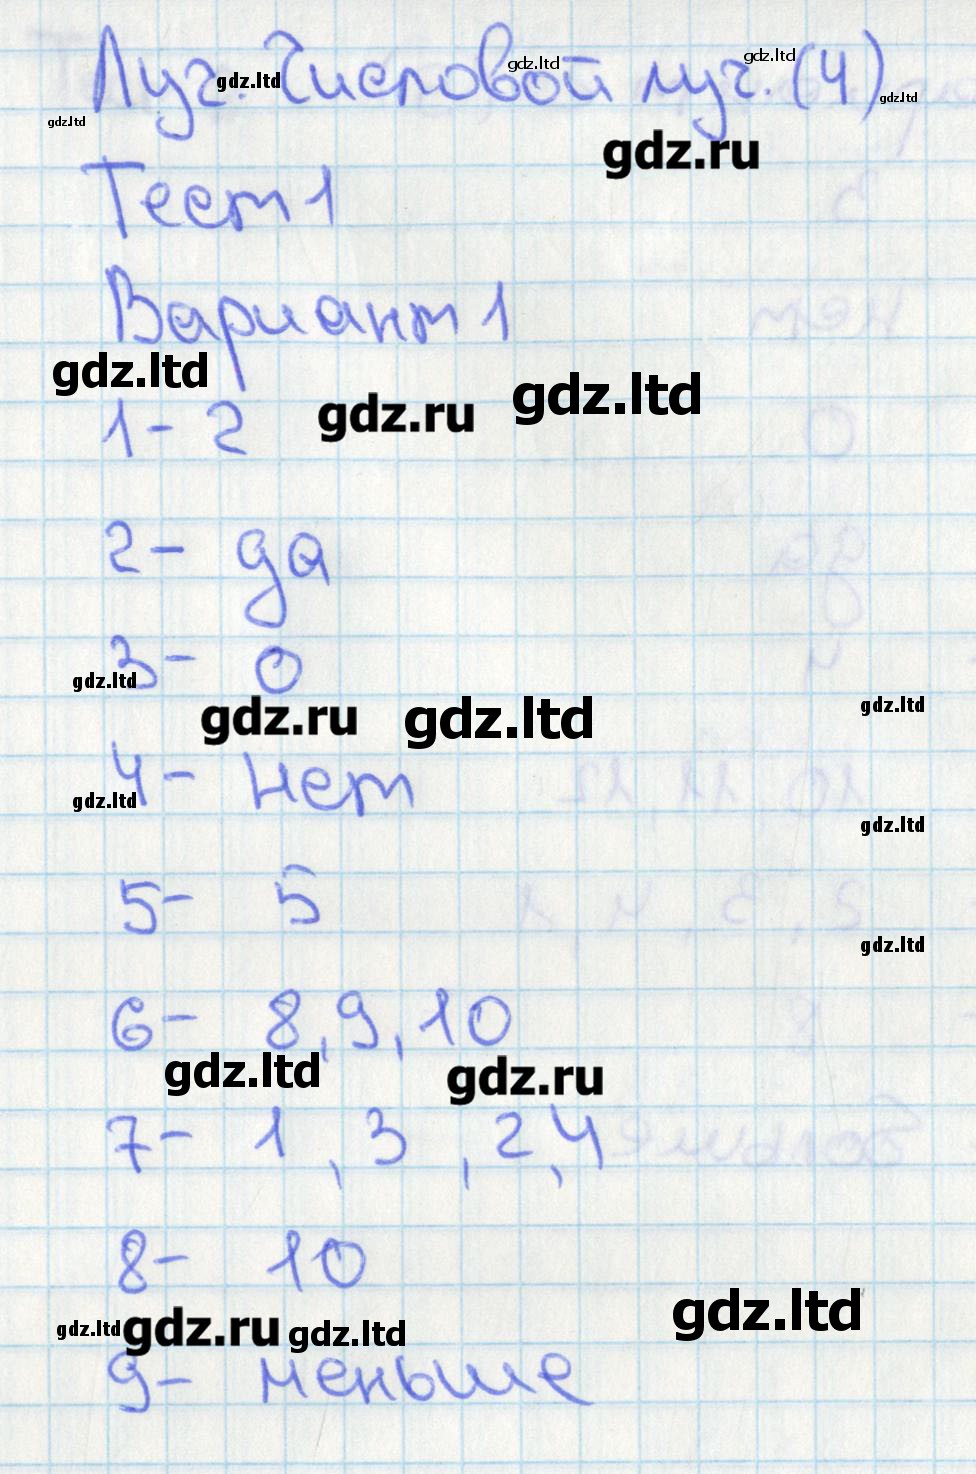 Луч. Числовой луч. (4)
gdz.ltd gdz.ltd gdz.ltd gdz.ltd
gdz.ltd
gdz.ru
Тест 1
Вариант 1
gdz.ltd gdz.ru gdz.ltd
1- 2
2- да
3- 0
gdz.ltd gdz.ru gdz.ltd gdz.ltd
4- нет
gdz.ltd gdz.ltd
5- 5
gdz.ltd
6- 8, 9, 10
gdz.ltd gdz.ru
7- 1, 3, 2, 4
8- 10
gdz.ltd gdz.ru gdz.ltd gdz.ltd
9- меньше